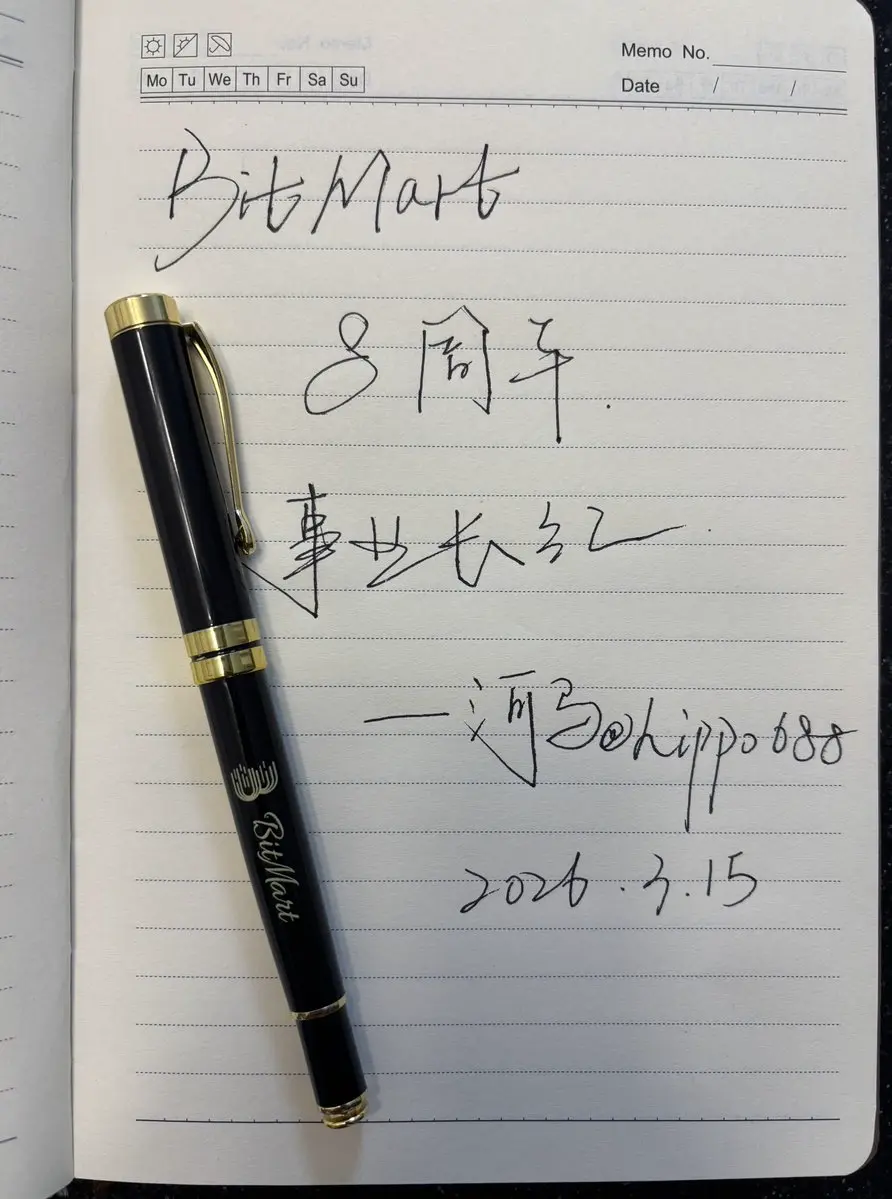 Memo No.
Mo Tu We Th Fr Sa Su
Date / /
BitMart
8周年.
事业长红.
—河马@hippo688
2026.3.15
BitMart